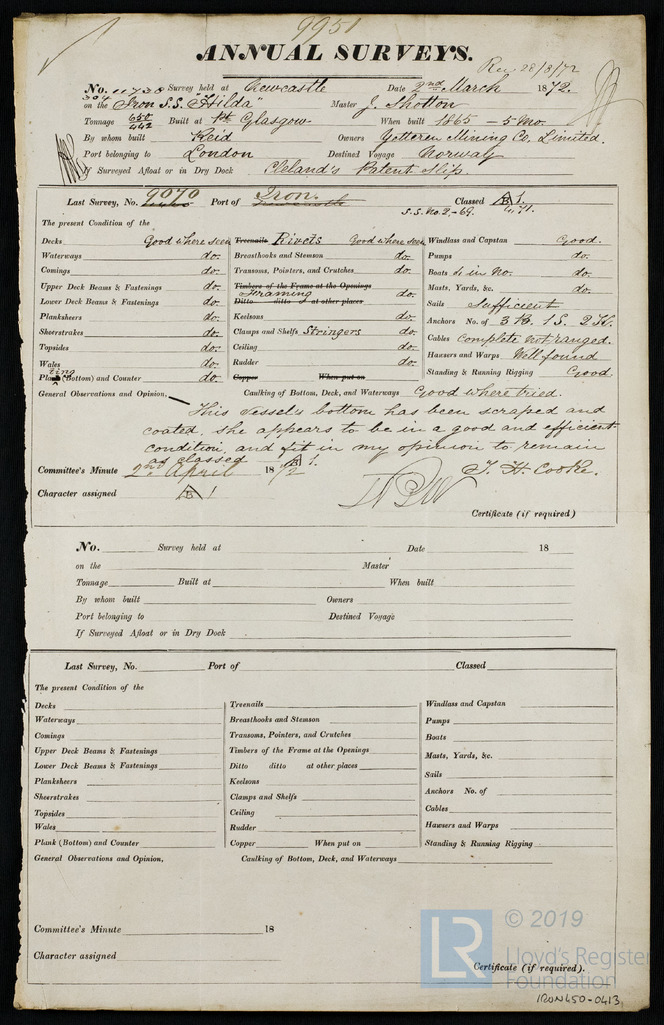 9951
ANNUAL SURVEYS.
Rec 28/3/72
No. 11738 Survey held at Newcastle Date 2nd March 1872.
on the Iron S.S. "Hilda" Master J. Shotton
Tonnage 650 442 Built at Pt Glasgow When built 1865 - 5 Mo.
By whom built Reid Owners Yetteren Mining Co, Limited.
Port belonging to London Destined Voyage Norway
If Surveyed Afloat or in Dry Dock Cleland's Patent Slip.
Last Survey, No. 9070 Port of Iron. Newcastle Classed A 1.
S.S. No. 2 - 69. 4.71.
The present Condition of the
Decks Good where seen Treenails Rivets Good where seen Windlass and Capstan Good.
Waterways do. Breasthooks and Stemson do. Pumps do.
Comings do. Transoms, Pointers, and Crutches do. Boats in No. do.
Upper Deck Beams & Fastenings do. Timbers of the Frame at the Openings Masts, Yards, &c. do.
Framing do.
Lower Deck Beams & Fastenings do. Ditto ditto at other places Sails Sufficient
Planksheers do. Keelsons do. Anchors No. of 3 B. 1 S. 2 K.
Sheerstrakes do. Clamps and Shelfs Stringers do. Cables Complete not ranged.
Topsides do. Ceiling do. Hawsers and Warps Well found
Wales do. Rudder do. Standing & Running Rigging Good
Plating (Bottom) and Counter do. Copper When put on
General Observations and Opinion, Caulking of Bottom, Deck, and Waterways Good where tried.
This vessel's bottom has been scraped and
coated. She appears to be in a good and efficient
condition, and fit in my opinion to remain
as classed A 1.
Committee's Minute 2nd April 1872 T. H. Cooke.
Character assigned A 1
Certificate (if required)
No. Survey held at Date 18
on the Master
Tonnage Built at When built
By whom built Owners
Port belonging to Destined Voyage
If Surveyed Afloat or in Dry Dock
Last Survey, No. Port of Classed
The present Condition of the
Decks Treenails Windlass and Capstan
Waterways Breasthooks and Stemson Pumps
Comings Transoms, Pointers, and Crutches Boats
Upper Deck Beams & Fastenings Timbers of the Frame at the Openings Masts, Yards, &c.
Lower Deck Beams & Fastenings Ditto ditto at other places Sails
Planksheers Keelsons Anchors No. of
Sheerstrakes Clamps and Shelfs Cables
Topsides Ceiling Hawsers and Warps
Wales Rudder Standing & Running Rigging
Plank (Bottom) and Counter Copper When put on
General Observations and Opinion, Caulking of Bottom, Deck, and Waterways
Committee's Minute 18
Character assigned
Certificate (if required).
LR © 2019
Lloyd's Register
Foundation
IRON450-0413